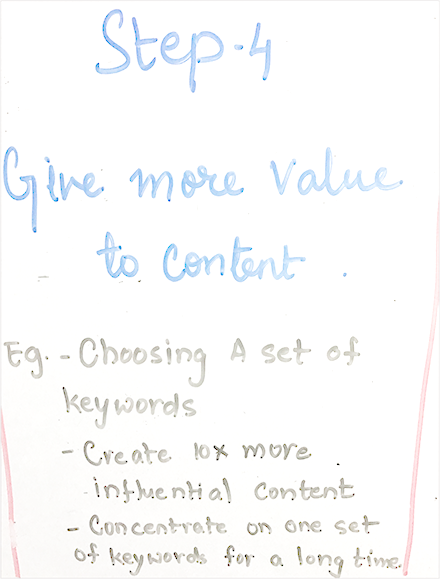 Step-4
Give more value
to content .
Eg. - Choosing A set of
keywords
- Create 10x more
influential content
- Concentrate on one set
of keywords for a long time.